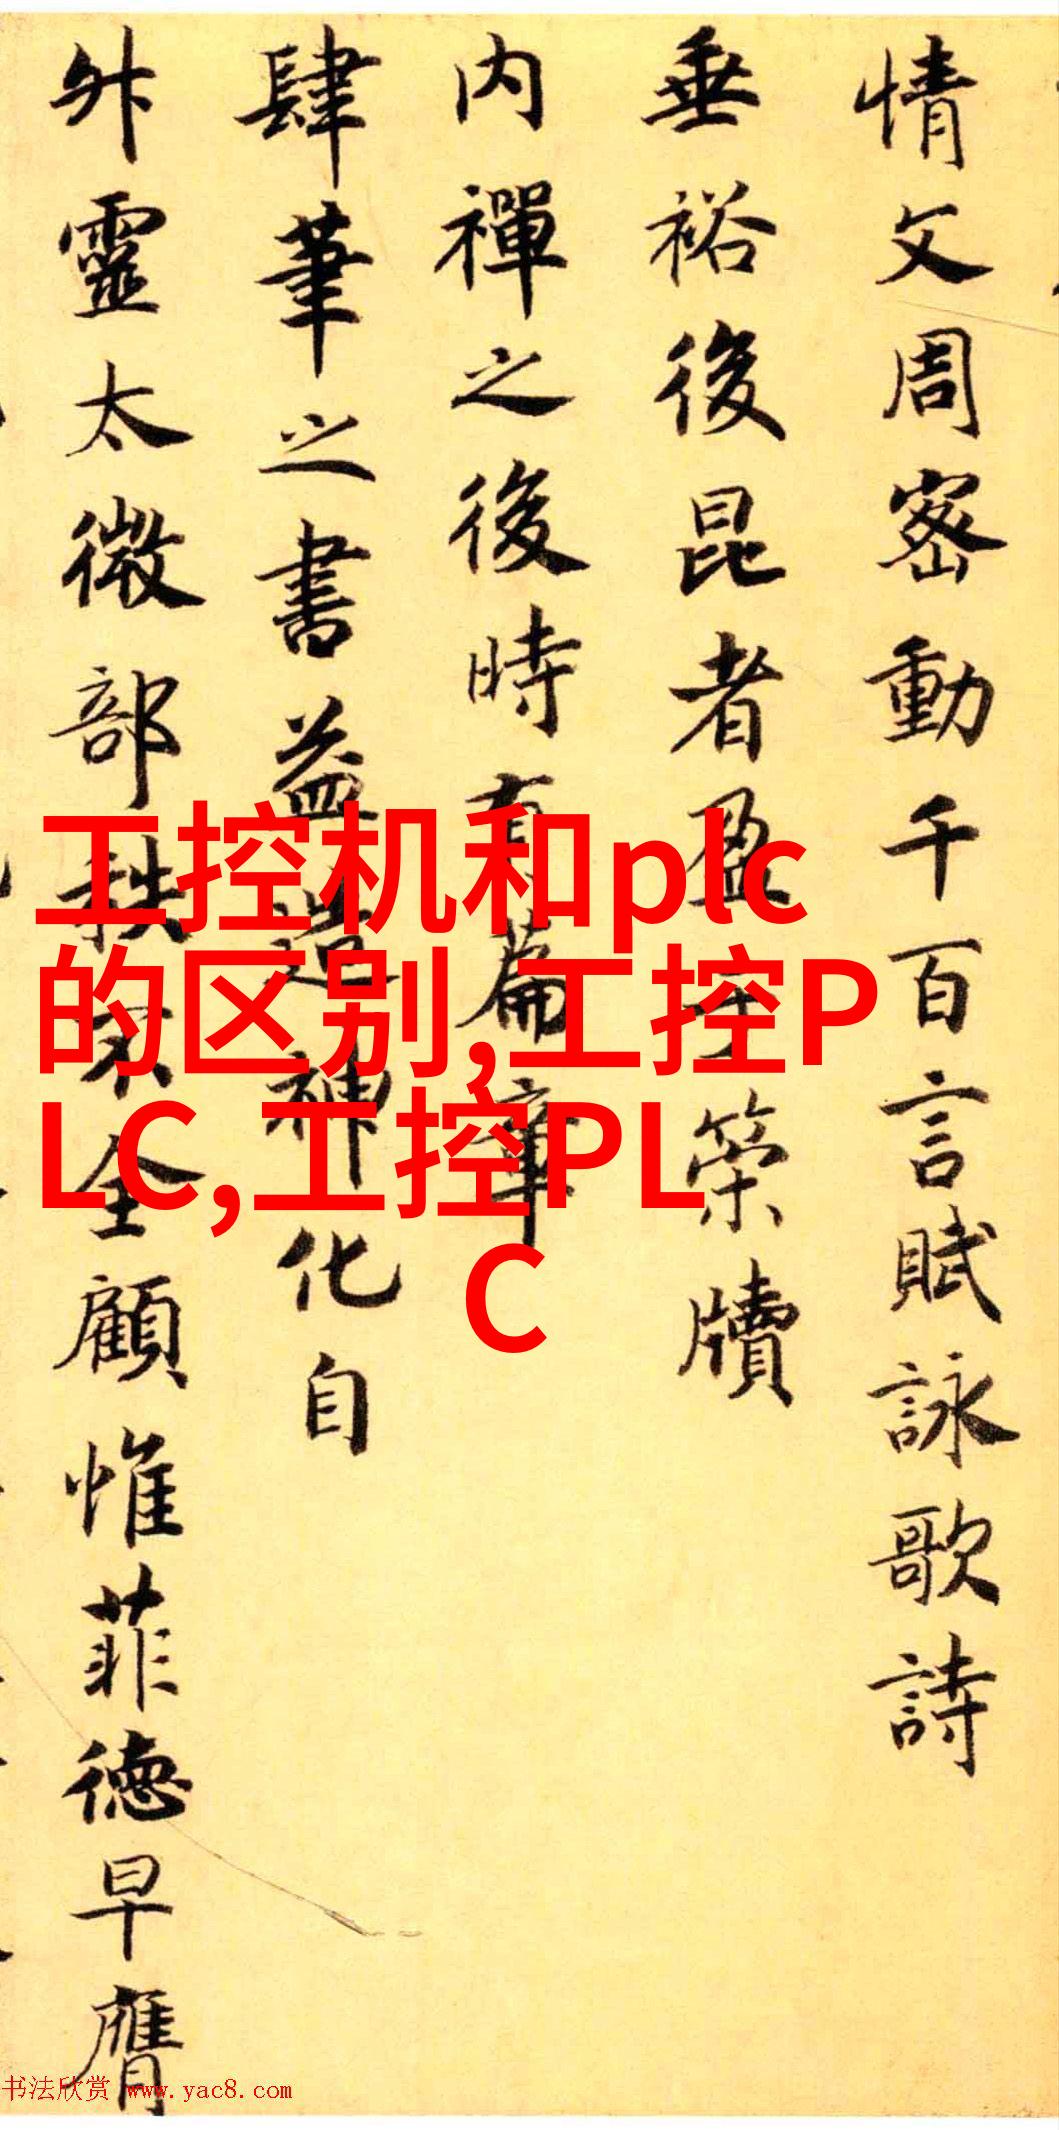 情文周密動千百言賦詠歌詩
垂裕後昆者盈于築牘
内禪之後時有篇章
肆筆之書益造神化自
升靈太微部秩不全顧惟菲德早膺
工控机和plc
的区别,工控P
LC,工控PL
C
书法欣赏 www.yac8.com